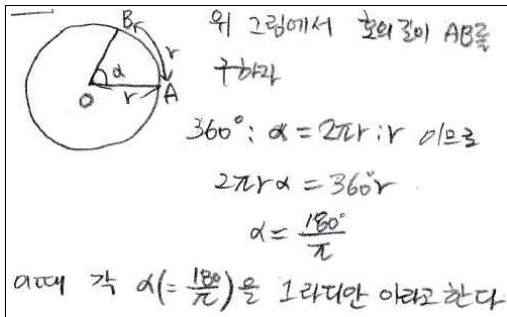 B
r
r
α
O
r
A
위 그림에서 호의 길이 AB를
구하라
360° : α = 2πr : r 이므로
2πrα = 360°r
α = 180°/π
이때 각 α(= 180/π)을 1라디안 이라고 한다